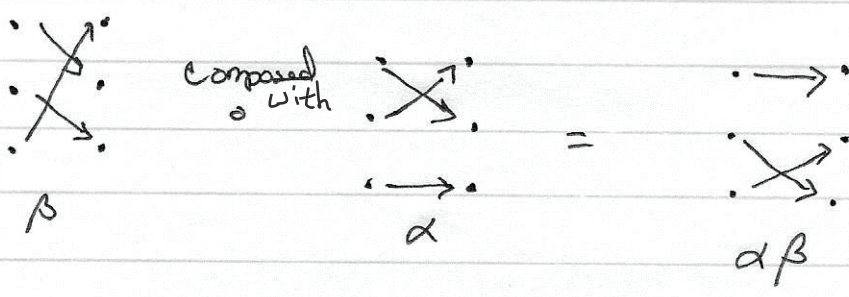 composed
∘ with
=
β
α
αβ